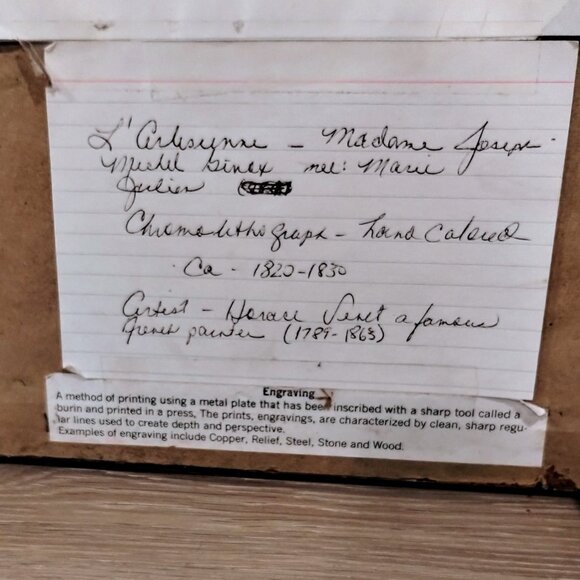 L'Arlesienne - Madame Joseph
Michel Ginox nee: Marie
Julien
Chromolithograph - hand colored
Ca - 1820-1830
Artist - Horace Vernet a famous
French painter (1789-1863)
Engraving
A method of printing using a metal plate that has been inscribed with a sharp tool called a
burin and printed in a press, The prints, engravings, are characterized by clean, sharp regu-
lar lines used to create depth and perspective.
Examples of engraving include Copper, Relief, Steel, Stone and Wood.